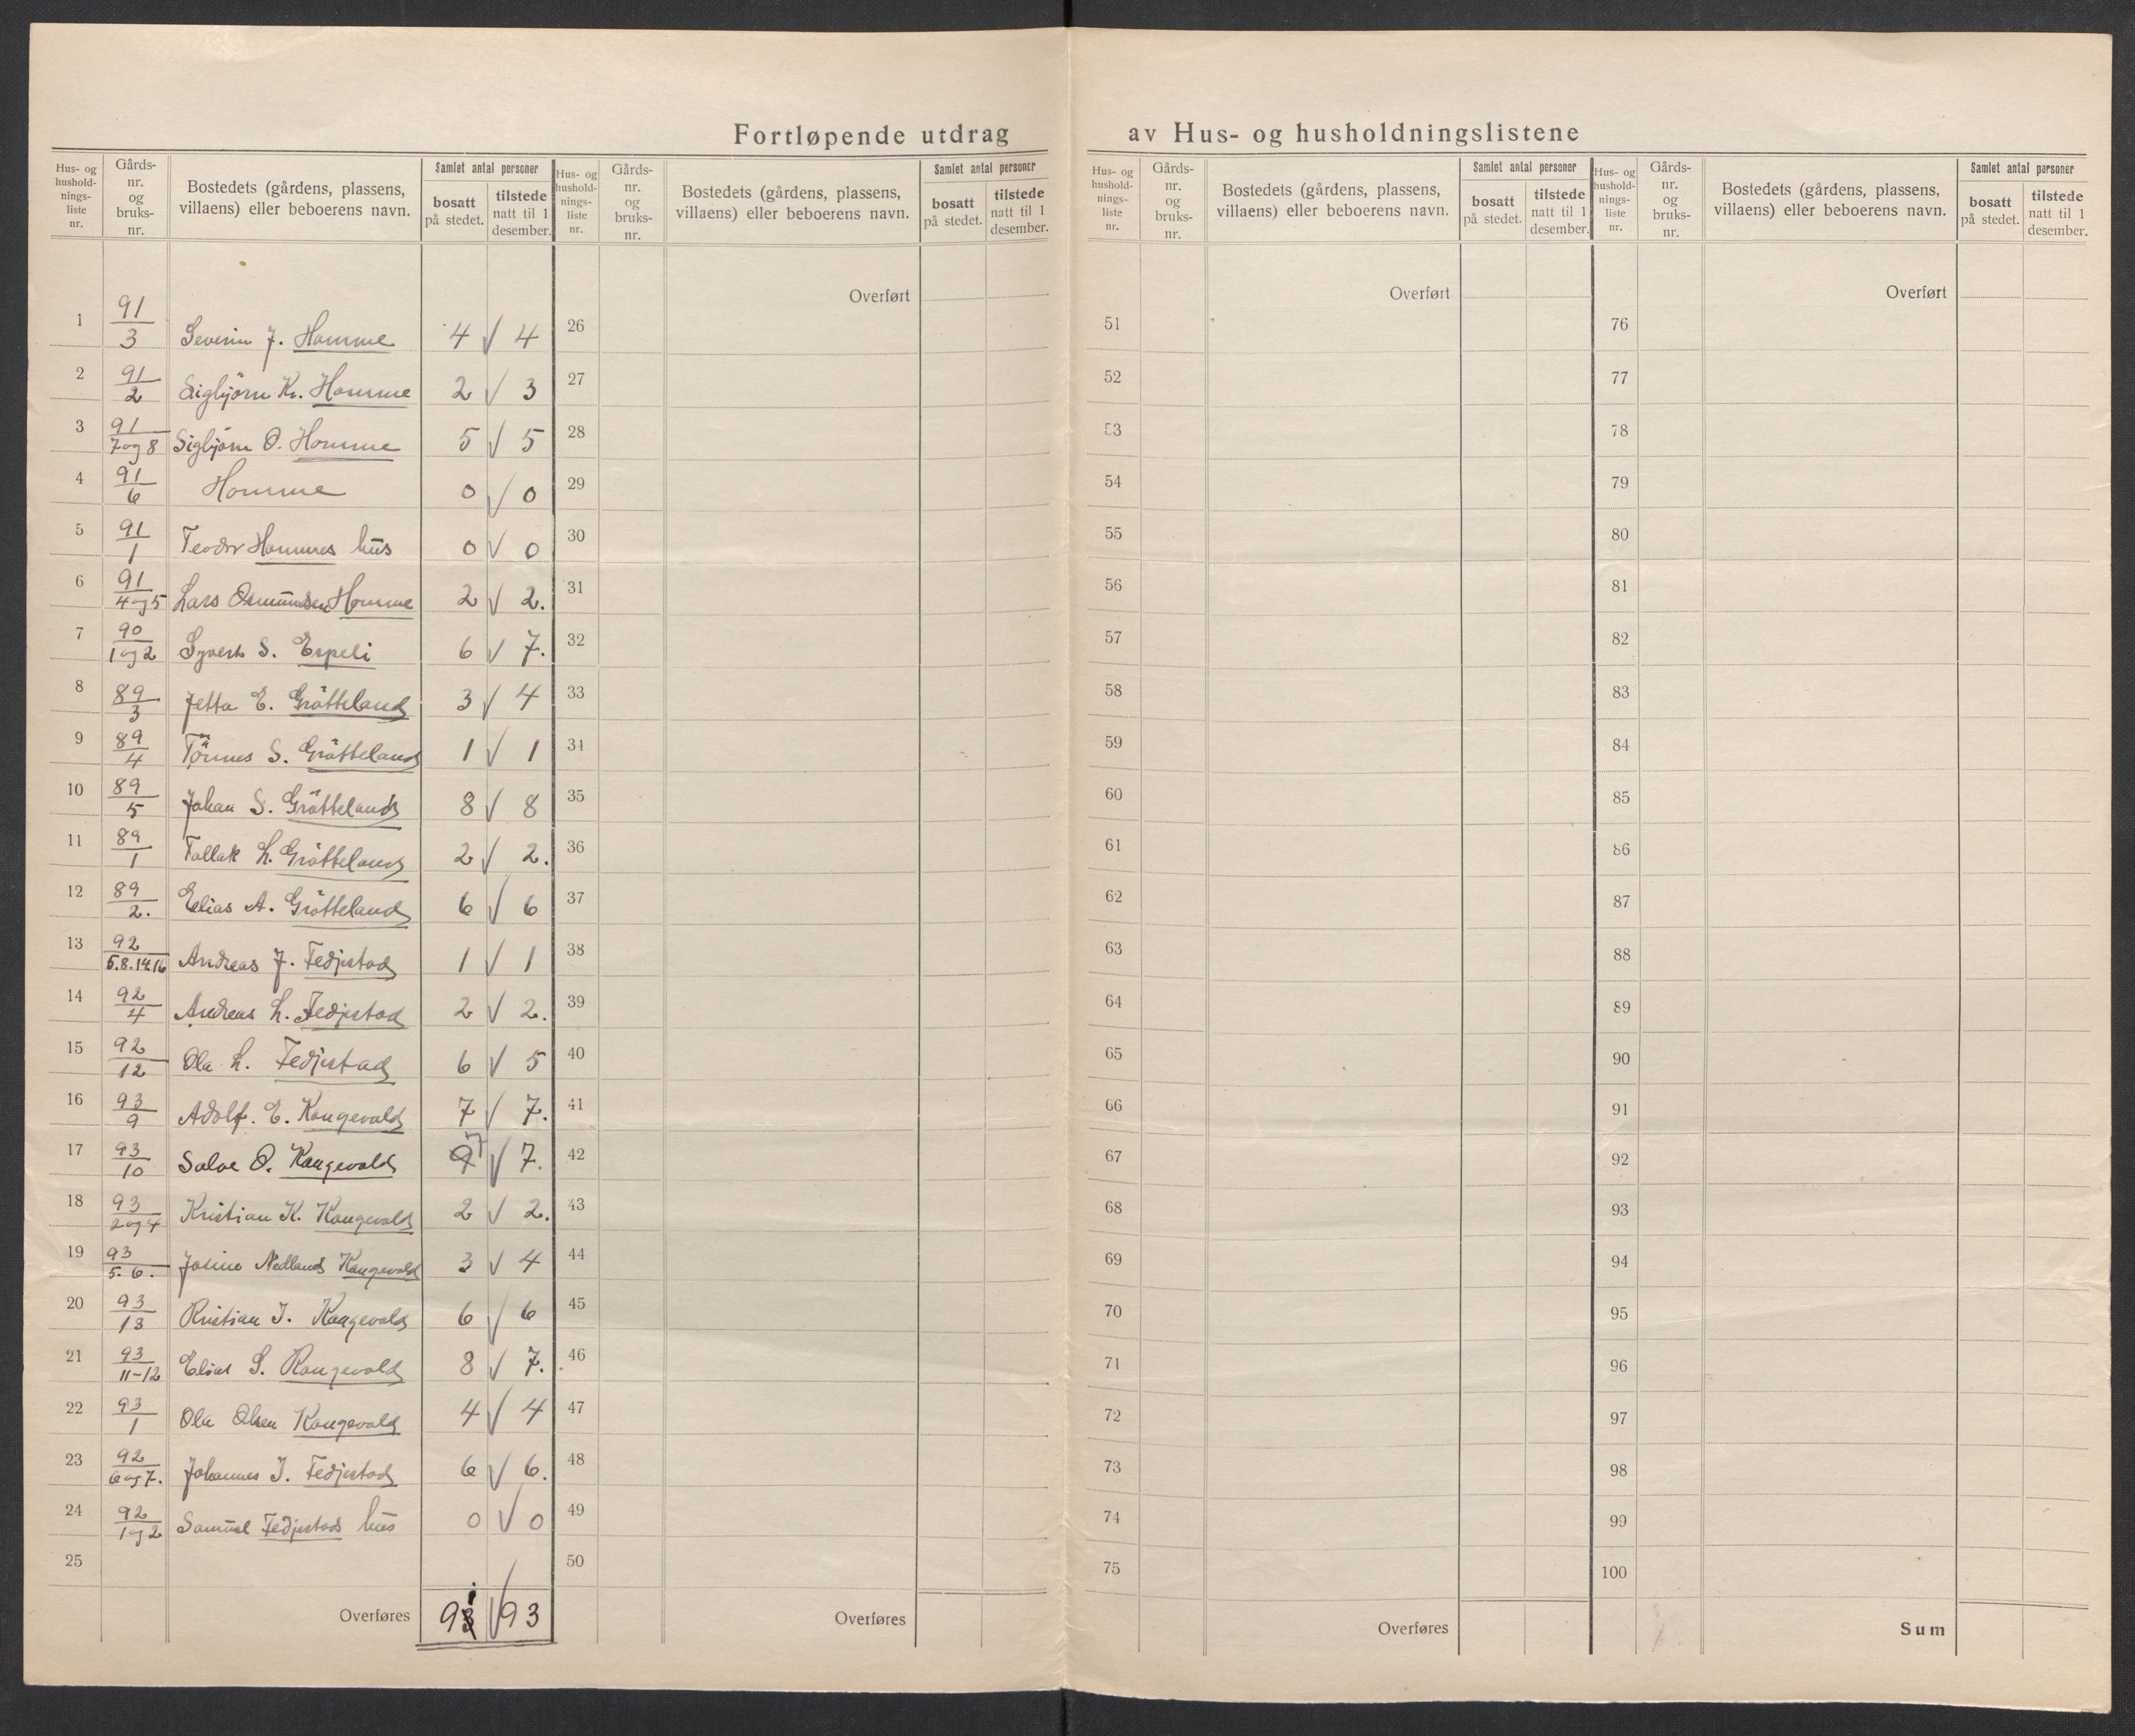 Fortløpende utdrag av Hus- og husholdningslistene
Hus- og hushold-nings-liste nr. Gårds-nr. og bruks-nr. Bostedets (gårdens, plassens, villaens) eller beboerens navn. Samlet antal personer bosatt på stedet. tilstede natt til 1 desember.
Hus- og hushold-nings-liste nr. Gårds-nr. og bruks-nr. Bostedets (gårdens, plassens, villaens) eller beboerens navn. Samlet antal personer bosatt på stedet. tilstede natt til 1 desember.
Hus- og hushold-nings-liste nr. Gårds-nr. og bruks-nr. Bostedets (gårdens, plassens, villaens) eller beboerens navn. Samlet antal personer bosatt på stedet. tilstede natt til 1 desember.
Hus- og hushold-nings-liste nr. Gårds-nr. og bruks-nr. Bostedets (gårdens, plassens, villaens) eller beboerens navn. Samlet antal personer bosatt på stedet. tilstede natt til 1 desember.
Overført Overført Overført
1 91/3 Severin J. Homme 4 √ 4 26 51 76
2 91/2 Sigbjörn Kr. Homme 2 √ 3 27 52 77
3 91/7og8 Sigbjörn O. Homme 5 √ 5 28 53 78
4 91/6 Homme 0 √ 0 29 54 79
5 91/1 Teodor Hommes hus 0 √ 0 30 55 80
6 91/4og5 Lars Osmundsen Homme 2 √ 2. 31 56 81
7 90/1og2 Syvert S. Espeli 6 √ 7. 32 57 82
8 89/3 Jetta E. Grötteland 3 √ 4 33 58 83
9 89/4 Tönnes S. Grötteland 1 √ 1 34 59 84
10 89/5 Johan S. Gröttelands 8 √ 8 35 60 85
11 89/1 Tallak L. Gröttelands 2 √ 2. 36 61 86
12 89/2. Elias A. Gröttelands 6 √ 6 37 62 87
13 92/5.8.14.16 Andreas J. Fedjestad 1 √ 1 38 63 88
14 92/4 Andreas L. Fedjestad 2 √ 2. 39 64 89
15 92/12 Ola L. Fedjestad 6 √ 5 40 65 90
16 93/9 Adolf. E. Kongevold 7 √ 7. 41 66 91
17 93/10 Salve O. Kongevold 9 7 √ 7. 42 67 92
18 93/2og4 Kristian K. Kongevold 2 √ 2. 43 68 93
19 93/5. 6. Nedlands Kongevold 3 √ 4 44 69 94
20 93/13 Kristian I. Kongevold 6 √ 6 45 70 95
21 93/11-12 Elias S. Kongevold 8 √ 7. 46 71 96
22 93/1 Ola Olsen Kongevold 4 √ 4 47 72 97
23 92/6og7. Johannes I. Fedjestad 6 √ 6. 48 73 98
24 92/1og2 Samuel Fedjestads hus 0 √ 0 49 74 99
25 50 75 100
Overføres 91 √ 93 Overføres Overføres Sum